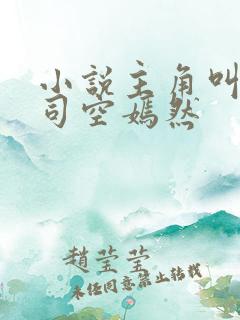 小說主角叫
司空嫣然
趙莹莹
未任同意禁止转载